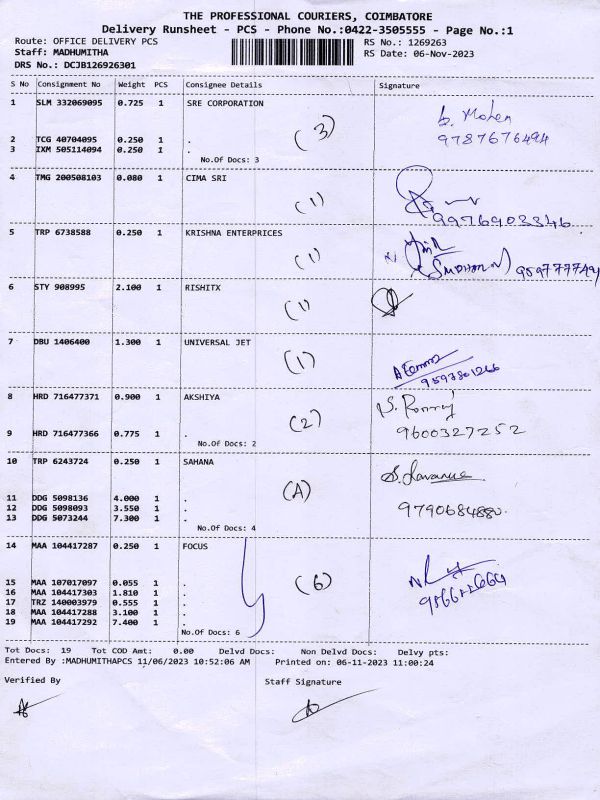 THE PROFESSIONAL COURIERS, COIMBATORE
Delivery Runsheet - PCS - Phone No.:0422-3505555 - Page No.:1
Route: OFFICE DELIVERY PCS RS No.: 1269263
Staff: MADHUMITHA RS Date: 06-Nov-2023
DRS No.: DCJB126926301
S No Consignment No Weight PCS Consignee Details Signature
1 SLM 332069095 0.725 1 SRE CORPORATION
(3) 9787676494
2 TCG 40704095 0.250 1 .
3 IXM 505114094 0.250 1 .
No.Of Docs: 3
4 TMG 200508103 0.080 1 CIMA SRI
(1) 9976903346
5 TRP 6738588 0.250 1 KRISHNA ENTERPRICES
(1)
6 STY 908995 2.100 1 RISHITX
(1)
7 DBU 1406400 1.300 1 UNIVERSAL JET
(1)
8 HRD 716477371 0.900 1 AKSHIYA
(2) 9600327252
9 HRD 716477366 0.775 1 .
No.Of Docs: 2
10 TRP 6243724 0.250 1 SAHANA
11 DDG 5098136 4.000 1 .
12 DDG 5098093 3.550 1 .
13 DDG 5073244 7.300 1 .
No.Of Docs: 4
14 MAA 104417287 0.250 1 FOCUS
(6)
15 MAA 107017097 0.055 1 .
16 MAA 104417303 1.810 1 .
17 TRZ 140003979 0.555 1 .
18 MAA 104417288 3.100 1 .
19 MAA 104417292 7.400 1 .
No.Of Docs: 6
Tot Docs: 19 Tot COD Amt: 0.00 Delvd Docs: Non Delvd Docs: Delvy pts:
Entered By :MADHUMITHAPCS 11/06/2023 10:52:06 AM Printed on: 06-11-2023 11:00:24
Verified By Staff Signature